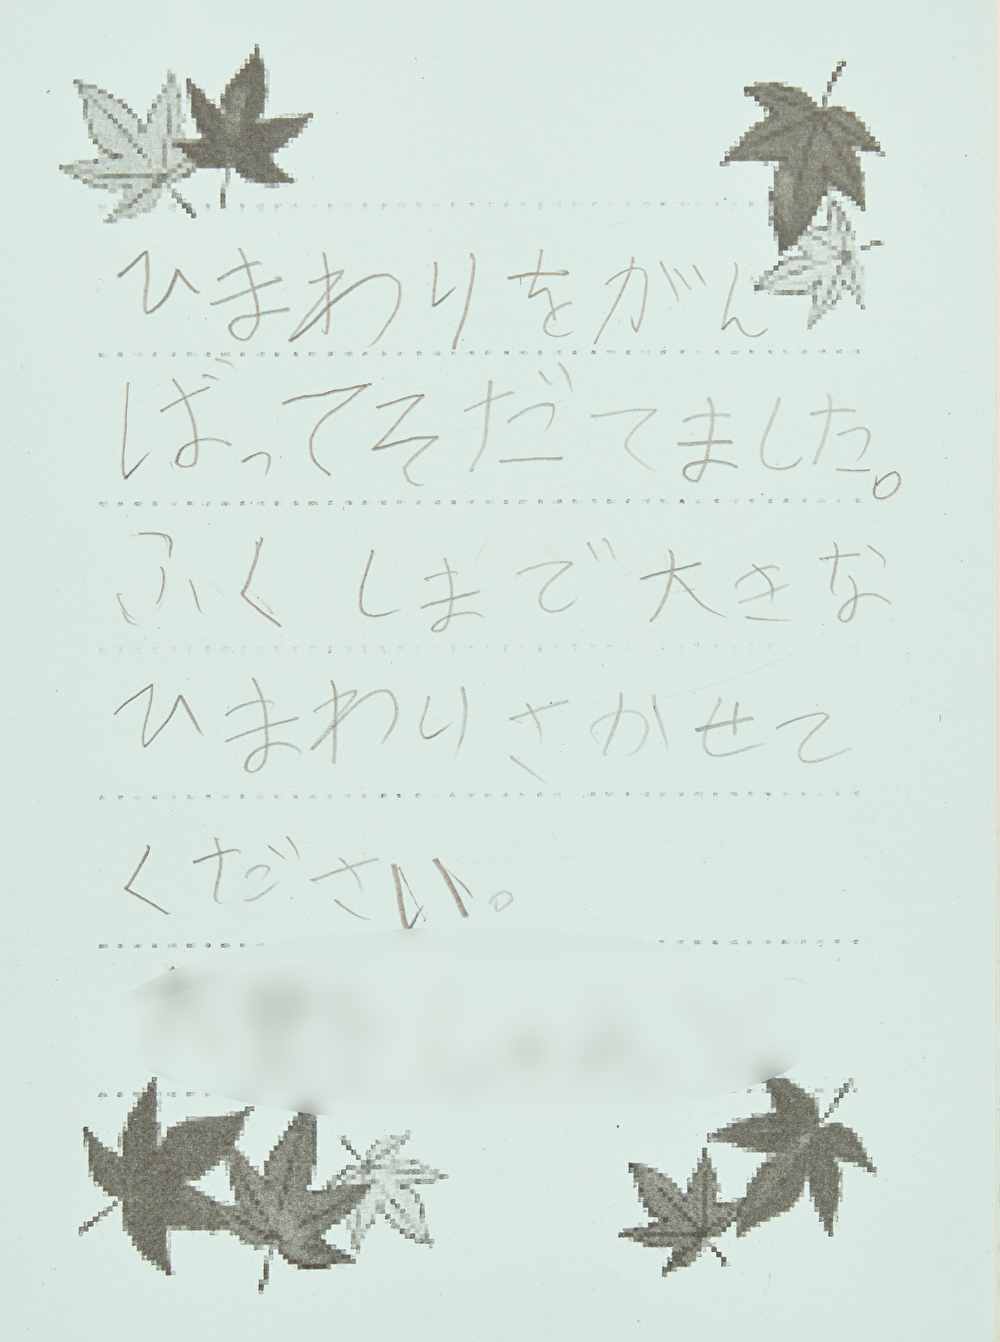 ひまわりをがん
ばってそだてました。
ふくしまで大きな
ひまわりさかせて
ください。